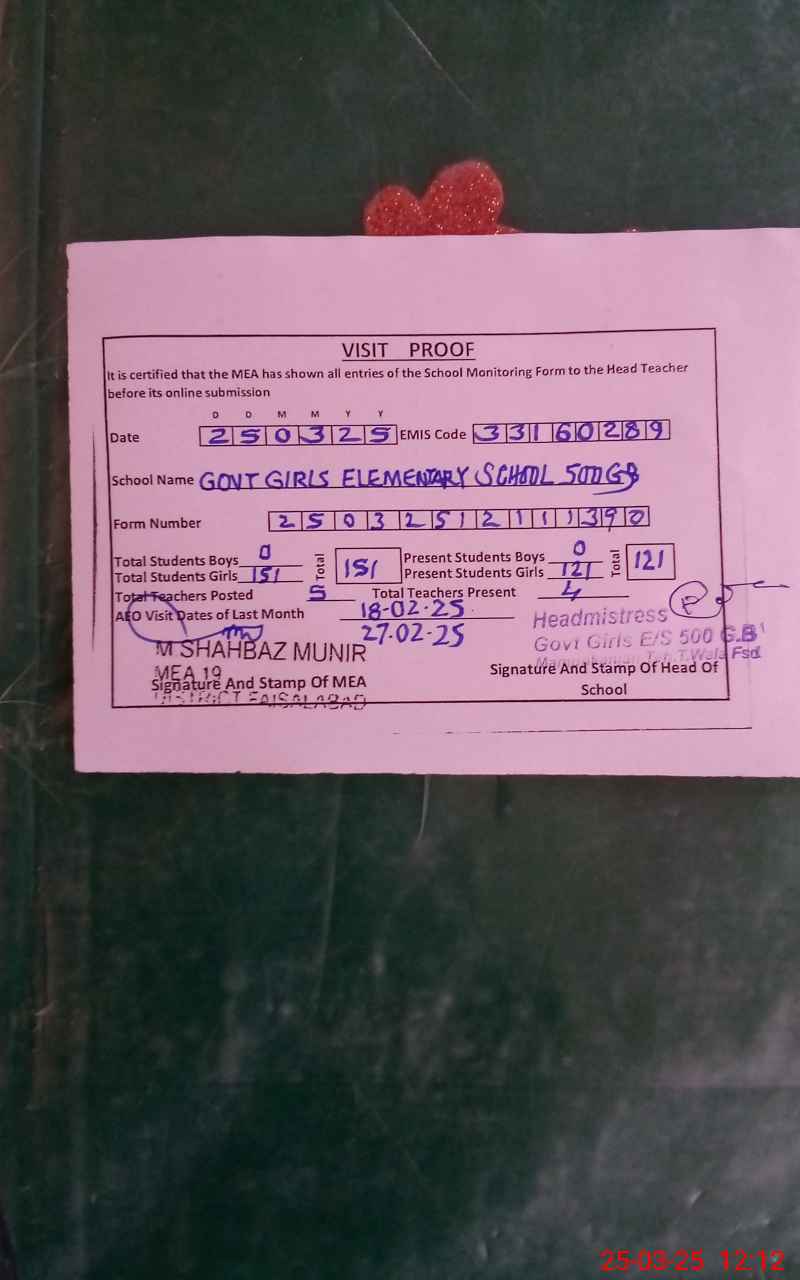 VISIT PROOF
It is certified that the MEA has shown all entries of the School Monitoring Form to the Head Teacher
before its online submission
D D M M Y Y
Date 2 5 0 3 2 5 EMIS Code 3 3 1 6 0 2 8 9
School Name GOVT GIRLS ELEMENTARY SCHOOL 500 GB
Form Number 2 5 0 3 2 5 1 2 1 1 1 3 9 0
Total Students Boys 0 Total 151 Present Students Boys 0 Total 121
Total Students Girls 151 Present Students Girls 121
Total Teachers Posted 5 Total Teachers Present 4
AEO Visit Dates of Last Month 18-02-25
27-02-25
Headmistress
Govt Girls E/S 500 G.B
T.Wala Fsd
M SHAHBAZ MUNIR
MEA 19
Signature And Stamp Of MEA
DISTRICT FAISALABAD
Signature And Stamp Of Head Of
School
25-03-25 12:12